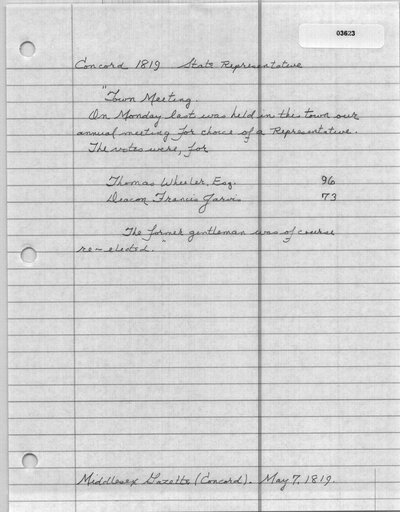 03623
Concord 1819 State Representative
"Town Meeting.
On Monday last was held in this town our
annual meeting for choice of a Representative.
The votes were, for
Thomas Wheeler, Esq. 96
Deacon Francis Jarvis 73
The former gentleman was of course
re-elected."
Middlesex Gazette (Concord). May 7, 1819.